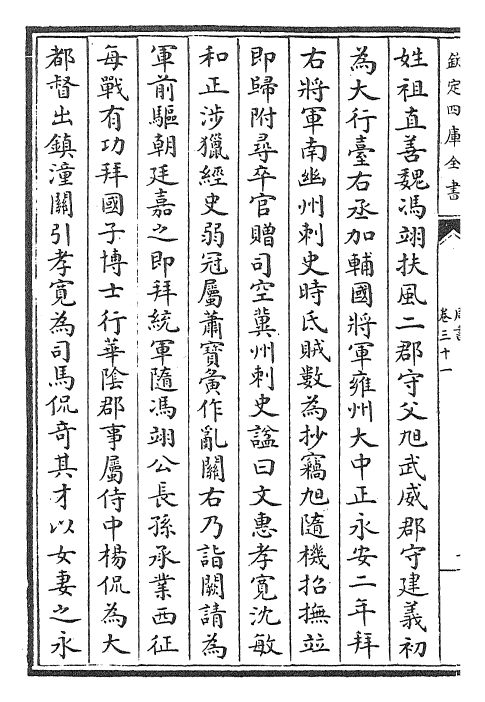 欽定四庫全書
卷三十一
姓祖直善魏馮翊扶風二郡守父旭武威郡守建義初
為大行臺右丞加輔國將軍雍州大中正永安二年拜
右將軍南幽州刺史時氐賊數為抄竊旭隨機招撫並
即歸附尋卒官贈司空冀州刺史諡曰文惠孝寛沈敏
和正涉獵經史弱冠屬蕭寶夤作亂關右乃詣闕請為
軍前驅朝廷嘉之即拜統軍隨馮翊公長孫承業西征
每戰有功拜國子博士行華陰郡事屬侍中楊侃為大
都督出鎮潼關引孝寛為司馬侃奇其才以女妻之永